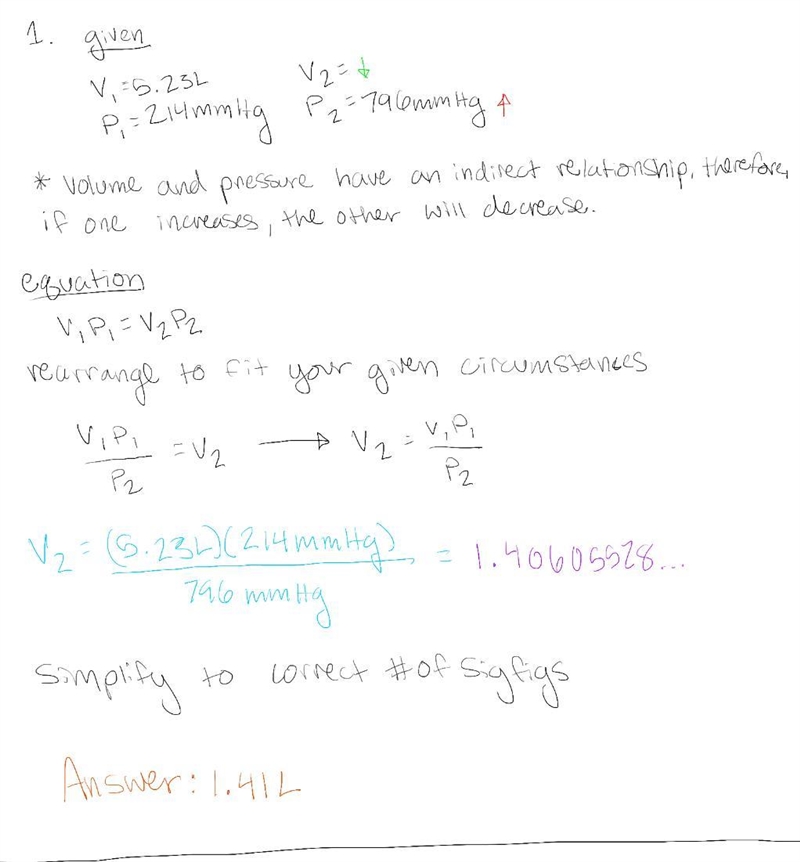 1. given
V₁=5.23L V₂=↓
P₁=214mmHg P₂=796mmHg ↑
* Volume and pressure have an indirect relationship, therefore,
if one increases, the other will decrease.
equation
V₁P₁=V₂P₂
rearrange to fit your given circumstances
V₁P₁/P₂ = V₂ → V₂ = V₁P₁/P₂
V₂ = (5.23L)(214mmHg)/796 mmHg = 1.40605528...
Simplify to correct # of Sigfigs
Answer: 1.41L